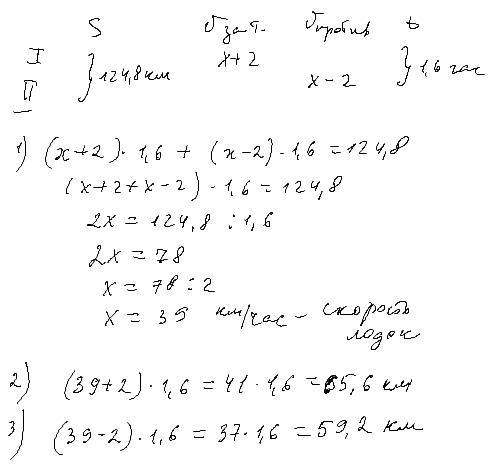 S Vза т. Vпротив t
I } 124,8 км x+2 } 1,6 час
II x-2
1) (x+2)·1,6 + (x-2)·1,6 = 124,8
(x+2+x-2)·1,6 = 124,8
2x = 124,8 : 1,6
2x = 78
x = 78 : 2
x = 39 км/час - скорость
лодок
2) (39+2)·1,6 = 41·1,6 = 65,6 км
3) (39-2)·1,6 = 37·1,6 = 59,2 км